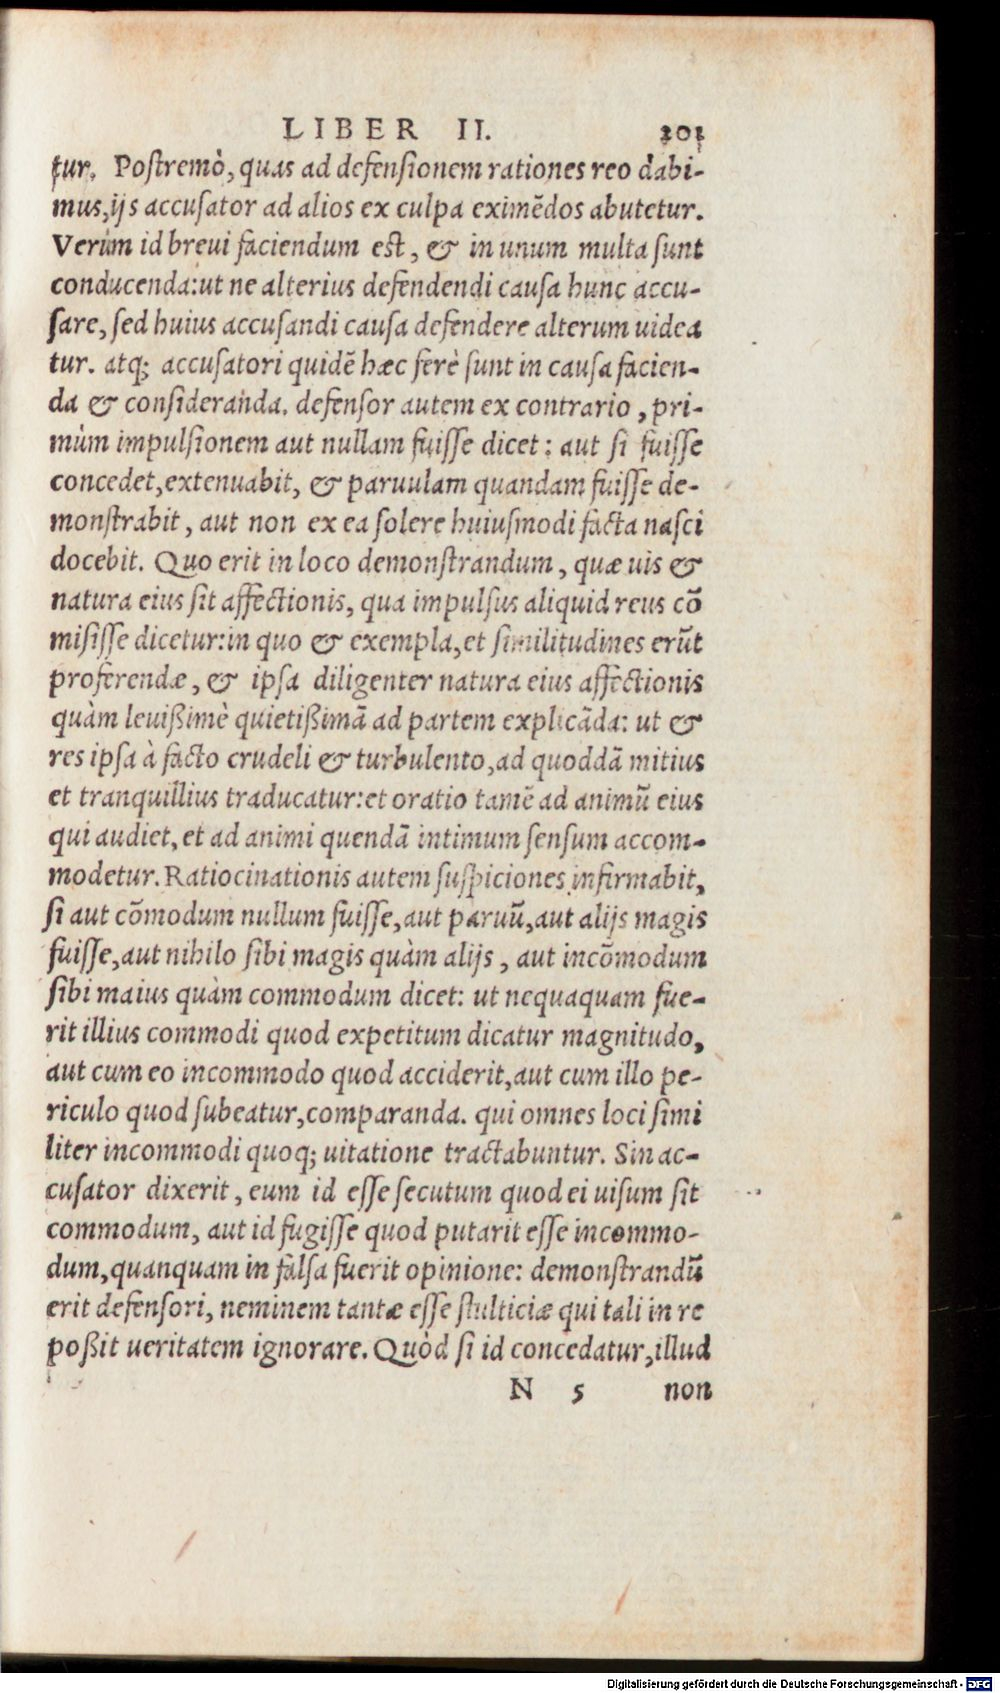 LIBER II. 201
tur. Postremò, quas ad defensionem rationes reo dabi-
mus, ijs accusator ad alios ex culpa eximẽdos abutetur.
Verùm id breui faciendum est, & in unum multa sunt
conducenda: ut ne alterius defendendi causa hunc accu-
sare, sed huius accusandi causa defendere alterum uidea
tur. atq; accusatori quidẽ hæc ferè sunt in causa facien-
da & consideranda. defensor autem ex contrario, pri-
mùm impulsionem aut nullam fuisse dicet: aut si fuisse
concedet, extenuabit, & paruulam quandam fuisse de-
monstrabit, aut non ex ea solere huiusmodi facta nasci
docebit. Quo erit in loco demonstrandum, quæ uis &
natura eius sit affectionis, qua impulsus aliquid reus cõ
misisse dicetur: in quo & exempla, et similitudines erũt
proferendæ, & ipsa diligenter natura eius affectionis
quàm leuißimè quietißimã ad partem explicãda: ut &
res ipsa à facto crudeli & turbulento, ad quoddã mitius
et tranquillius traducatur: et oratio tamẽ ad animũ eius
qui audiet, et ad animi quendã intimum sensum accom-
modetur. Ratiocinationis autem suspiciones infirmabit,
si aut cõmodum nullum fuisse, aut paruũ, aut alijs magis
fuisse, aut nihilo sibi magis quàm alijs, aut incõmodum
sibi maius quàm commodum dicet: ut nequaquam fue-
rit illius commodi quod expetitum dicatur magnitudo,
aut cum eo incommodo quod acciderit, aut cum illo pe-
riculo quod subeatur, comparanda. qui omnes loci simi
liter incommodi quoq; uitatione tractabuntur. Sin ac-
cusator dixerit, eum id esse secutum quod ei uisum sit
commodum, aut id fugisse quod putarit esse incommo-
dum, quanquam in falsa fuerit opinione: demonstrandũ
erit defensori, neminem tantæ esse stulticiæ qui tali in re
poßit ueritatem ignorare. Quòd si id concedatur, illud
N 5 non
Digitalisierung gefördert durch die Deutsche Forschungsgemeinschaft - DFG